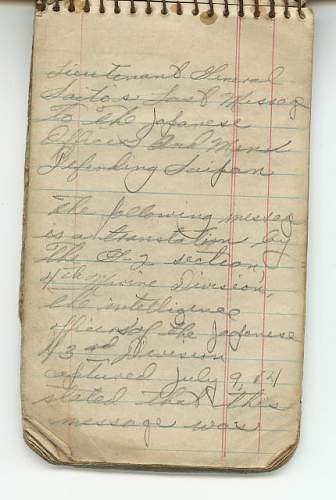 Lieutenant General
Saito's Last Messeg
To the Japanese
Officers And Mend
Defending Saipan
The following messeg
is a translation by
The G-2 section,
4th Marine Division,
the intelligence
officer of the Japanese
43rd Division
captured July 9, 44
stated that this
message was